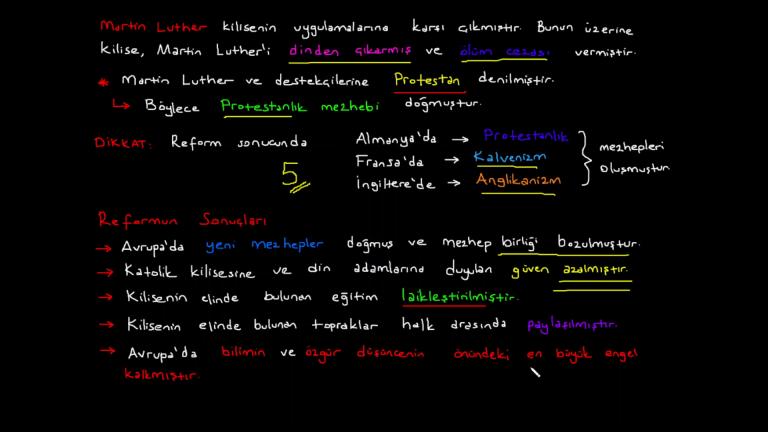 Martin Luther kilisenin uygulamalarına karşı çıkmıştır. Bunun üzerine
Kilise, Martin Luther'i dinden çıkarmış ve ölüm cezası vermiştir.
* Martin Luther ve destekçilerine Protestan denilmiştir.
↳ Böylece Protestanlık mezhebi doğmuştur.
DİKKAT: Reform sonucunda
5
Almanya'da → Protestanlık
Fransa'da → Kalvenizm
İngiltere'de → Anglikanizm
mezhepleri
oluşmuştur.
Reformun Sonuçları
→ Avrupa'da yeni mezhepler doğmuş ve mezhep birliği bozulmuştur.
→ Katolik kilisesine ve din adamlarına duyulan güven azalmıştır.
→ Kilisenin elinde bulunan eğitim laikleştirilmiştir.
→ Kilisenin elinde bulunan topraklar halk arasında paylaşılmıştır.
→ Avrupa'da bilimin ve özgür düşüncenin önündeki en büyük engel
kalkmıştır.